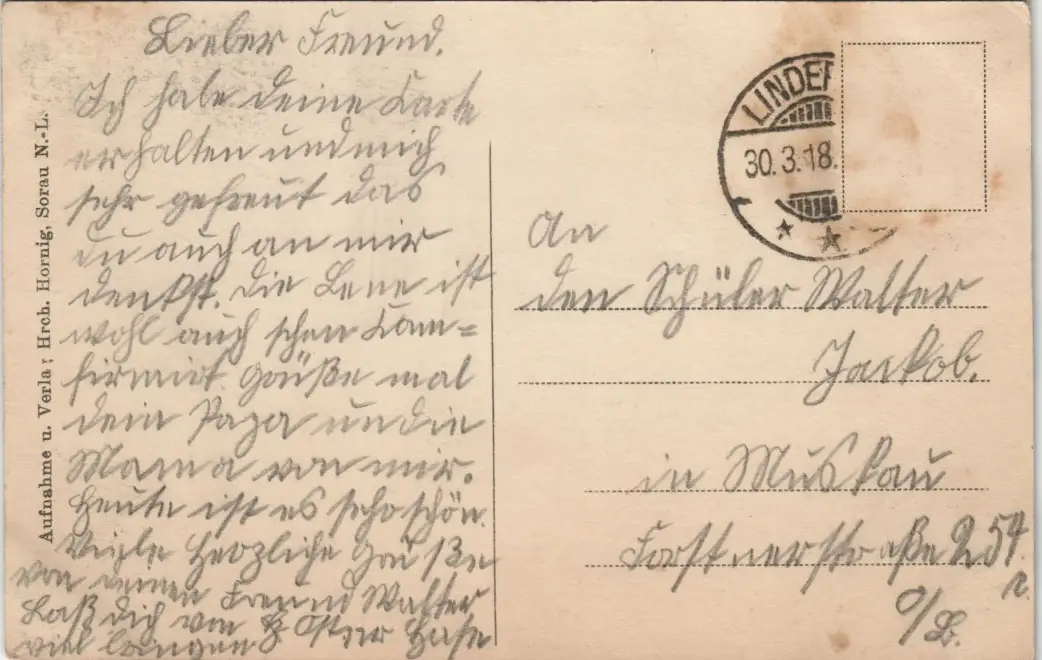 Lieber Freund.
Ich habe deine Karte
erhalten und mich
sehr gefreut das
du auch an mir
denkst. Die Lene ist
wohl auch schon Kom=
firmirt. Grüße mal
dein Papa und die
Mama von mir.
Heute ist es sehr schön.
Viele Herzliche Grüße
von deinen Freund Walter
Laß dich vom Oster Hase
viel bringen
Aufnahme u. Verla: Hrch. Hornig, Sorau N.-L.
LINDER
30.3.18.
An
den Schüler Walter
Jackob.
in Muskau
Forstnerstraße 254.
O/L.